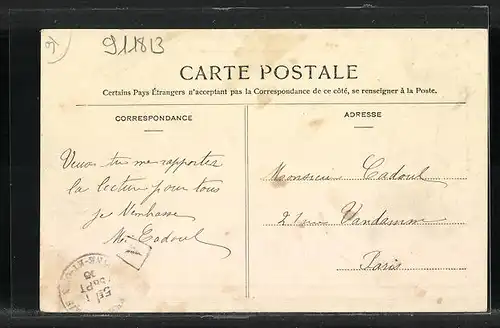 911813
CARTE POSTALE
Certains Pays Étrangers n'acceptant pas la Correspondance de ce côté, se renseigner à la Poste.
CORRESPONDANCE
tu me rapporter
la lecture pour tous
je
Cadoul
ADRESSE
Monsieur Cadoul
21 rue Vandamme
Paris